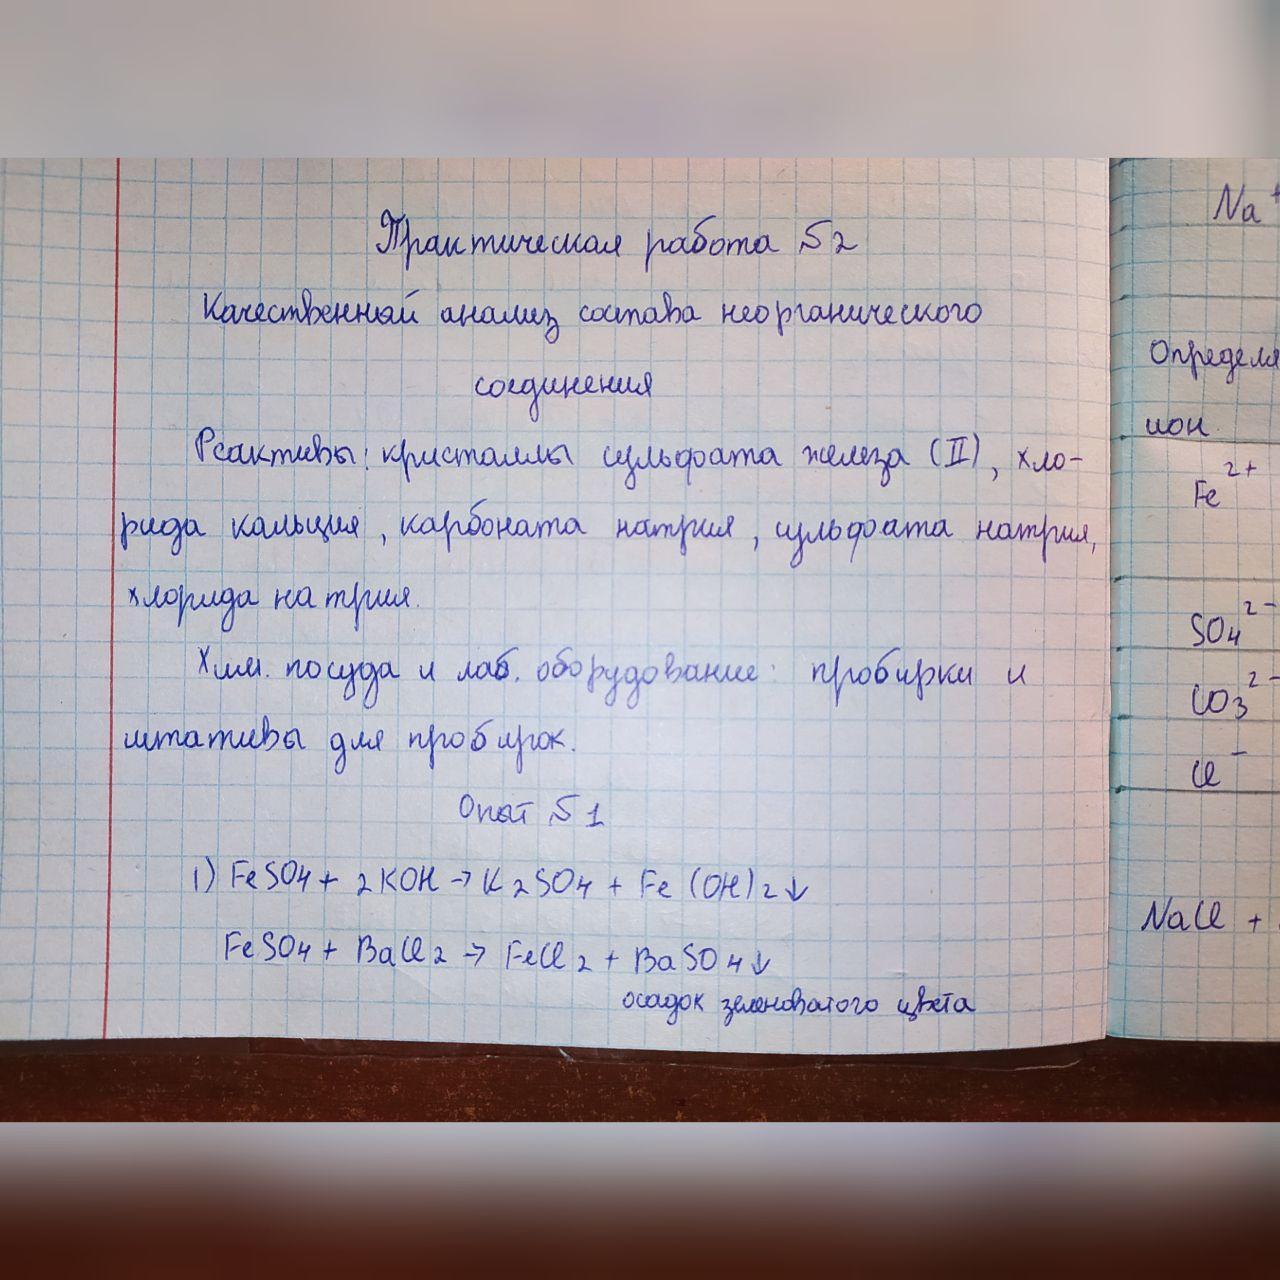 Практическая работа №2
Качественный анализ состава неорганического
соединения
Реактивы: кристаллы сульфата железа (II), хло-
рида кальция, карбоната натрия, сульфата натрия,
хлорида натрия.
Хим. посуда и лаб. оборудование: пробирки и
штативы для пробирок.
Опыт №1
1) FeSO4 + 2KOH → K2SO4 + Fe(OH)2↓
FeSO4 + BaCl2 → FeCl2 + BaSO4↓
осадок зеленоватого цвета
Na+
Определя
ион
Fe2+
SO4 2-
CO3 2-
Cl-
NaCl +